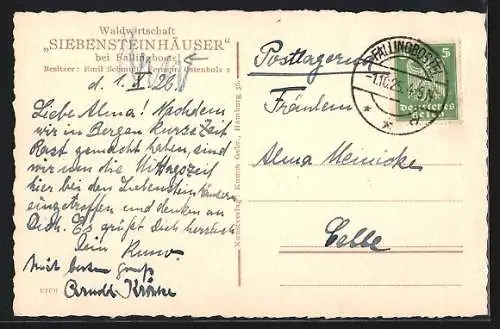 Waldwirtschaft
„SIEBENSTEINHÄUSER“
bei Fallingbostel
Besitzer: Emil Schmidt, Fernspr. Ostenholz 2
d. 1. X 26.
Liebe Alma! Nachdem
wir in Bergen kurze Zeit
Rast gemacht haben, sind
wir um die Mittagszeit
hier bei den Siebenstein häusern
eingetroffen und denken an
Dich. Es grüßt Dich herzlich
Dein Kuno.
Mit besten Gruß
Arnold
Kunstverlag Hamburg 36.
Postlagernd
Fräulein
Alma Meinicke
Celle
FALLINGBOSTEL
-1.10.26. 4-5 N.
5
Deutsches
Reich